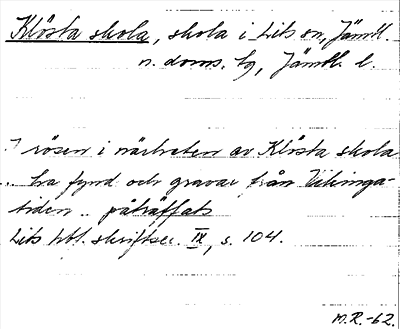 Klösta skola, skola i Lits sn, Jämtl.
n. doms. tg, Jämtl. l.
I rösen i närheten av Klösta skola
.. ha fynd och gravar från Vikinga-
tiden .. påträffats
Lits hbf. skriftser. IX, s. 104.
M.R.-62.